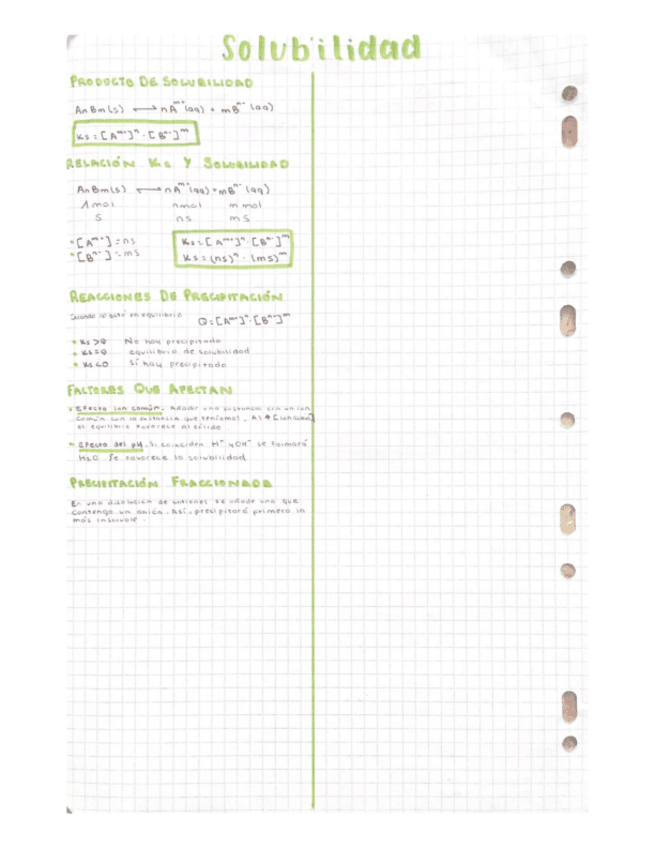 Solubilidad
PRODUCTO DE SOLUBILIDAD
AnBm(s) ⟷ nAᵐ⁺(aq) + mBⁿ⁻(aq)
Ks = [Aᵐ⁺]ⁿ · [Bⁿ⁻]ᵐ
RELACIÓN Ks Y SOLUBILIDAD
AnBm(s) ⟷ nAᵐ⁺(aq) + mBⁿ⁻(aq)
1mol nmol m mol
S ns ms
• [Aᵐ⁺] = ns
• [Bⁿ⁻] = ms
Ks = [Aᵐ⁺]ⁿ · [Bⁿ⁻]ᵐ
Ks = (ns)ⁿ · (ms)ᵐ
REACCIONES DE PRECIPITACIÓN
Cuando no está en equilibrio Q = [Aᵐ⁺]ⁿ · [Bⁿ⁻]ᵐ
• Ks > Q No hay precipitado
• Ks = Q equilibrio de solubilidad
• Ks < Q Sí hay precipitado
FACTORES QUE AFECTAN
• Efecto ion común. Añadir una sustancia con un ion
común con la sustancia que teníamos. Al ↑ [ion común]
el equilibrio favorece al sólido
• Efecto del pH. Si coinciden H⁺ y OH⁻ se formará
H₂O. Se favorece la solubilidad
PRECIPITACIÓN FRACCIONADA
En una disolución de se añade una que
contenga un anión. Así, precipitará primero la
más insoluble.